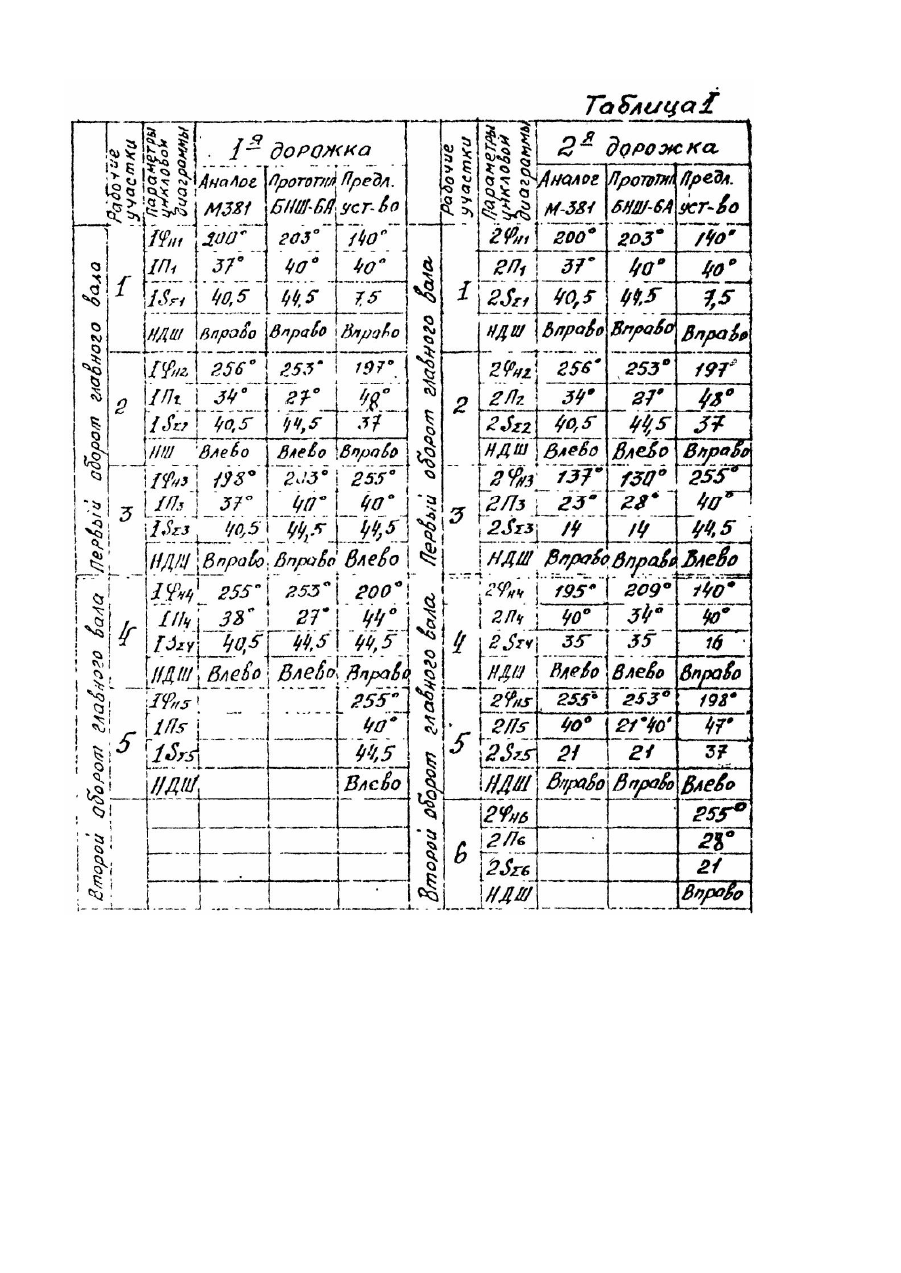 Таблица I
Рабочие участки
Параметры цикловой диаграммы
1я дорожка
Рабочие участки
Параметры цикловой диаграммы
2я дорожка
Аналог М381
Прототип БНШ-6А
Предл. уст-во
Аналог М-381
Прототип БНШ-6А
Предл. уст-во
Первый оборот главного вала
Первый оборот главного вала
1 IφН1 200° 203° 140° 1 2φН1 200° 203° 140°
IП1 37° 40° 40° 2П1 37° 40° 40°
1SΣ1 40,5 44,5 7,5 2SΣ1 40,5 44,5 7,5
НДШ Вправо Вправо Вправо НДШ Вправо Вправо Вправо
2 IφН2 256° 253° 197° 2 2φН2 256° 253° 197°
IП2 34° 27° 48° 2П2 34° 27° 48°
1SΣ2 40,5 44,5 37 2SΣ2 40,5 44,5 37
НШ Влево Влево Вправо НДШ Влево Влево Вправо
3 IφН3 198° 203° 255° 3 2φН3 137° 130° 255°
IП3 37° 40° 40° 2П3 23° 28° 40°
1SΣ3 40,5 44,5 44,5 2SΣ3 14 14 44,5
НДШ Вправо Вправо Влево НДШ Вправо Вправо Влево
Второй оборот главного вала
Второй оборот главного вала
4 IφН4 255° 253° 200° 4 2φН4 195° 209° 140°
IП4 38° 27° 44° 2П4 40° 34° 40°
ISΣ4 40,5 44,5 44,5 2SΣ4 35 35 16
НДШ Влево Влево Вправо НДШ Влево Влево Вправо
5 IφН5 255° 5 2φН5 255° 253° 198°
1П5 40° 2П5 40° 21°40' 47°
1SΣ5 44,5 2SΣ5 21 21 37
НДШ Влево НДШ Вправо Вправо Влево
6 2φН6 255°
2П6 28°
2SΣ6 21
НДШ Вправо